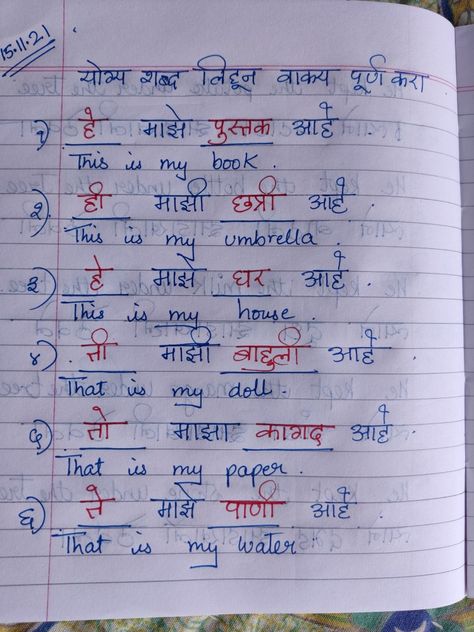 15.11.21
योग्य शब्द लिहून वाक्य पूर्ण करा
१) हे माझे पुस्तक आहे.
This is my book.
२) ही माझी छत्री आहे.
This is my umbrella.
३) हे माझे घर आहे.
This is my house.
४) ती माझी बाहुली आहे.
That is my doll.
५) तो माझा कागद आहे.
That is my paper.
६) ते माझे पाणी आहे.
That is my water.